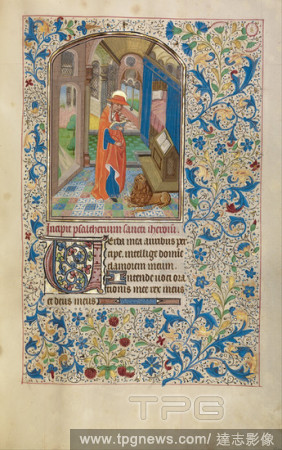 Incipit psalterium sancti iheronimi
Verba mea auribus per
cipe domine intellige
clamorem meum
Intende voci ora
tionis mee rex meus
et deus meus
TPG
www.tpgnews.com/達志影像